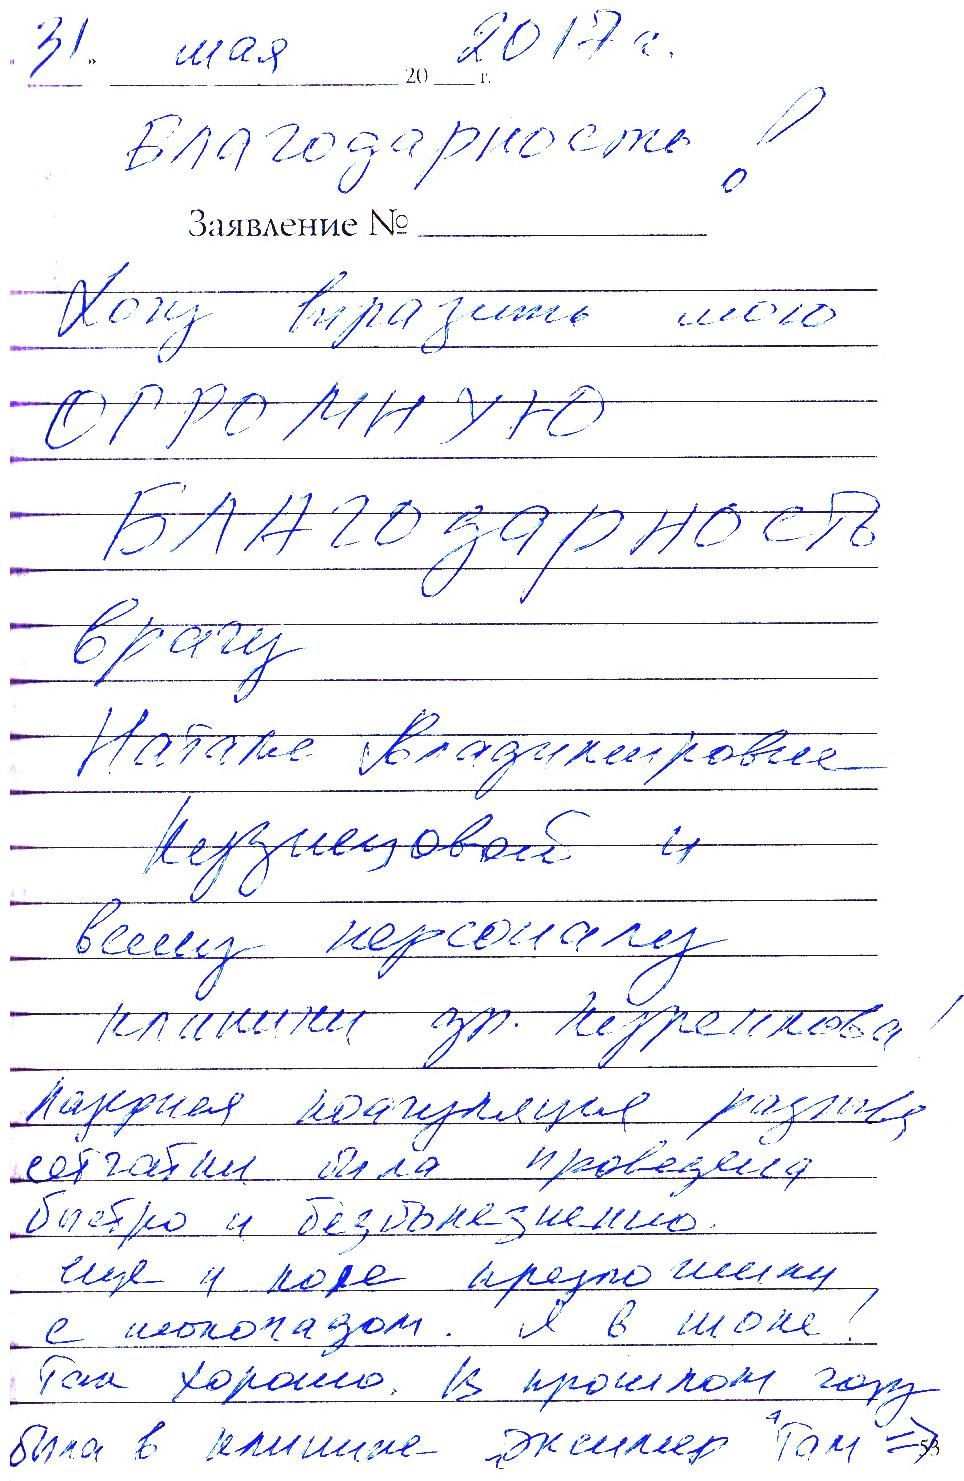 31 " мая 2017 г.
20 г.
Благодарность!
Заявление №
Хочу выразить мою
ОГРОМНУЮ
БЛАГОдарность
врачу
Наталье Владимировне
Кузнецовой и
всему персоналу
клиники др. Куренкова!
Лазерная коагуляция разрыва
сетчатки была проведена
быстро и безболезненно.
еще и кофе предложили
с шоколадом. Я в шоке!
Так хорошо. В прошлом году
была в клинике "Эксимер" Там =>
53